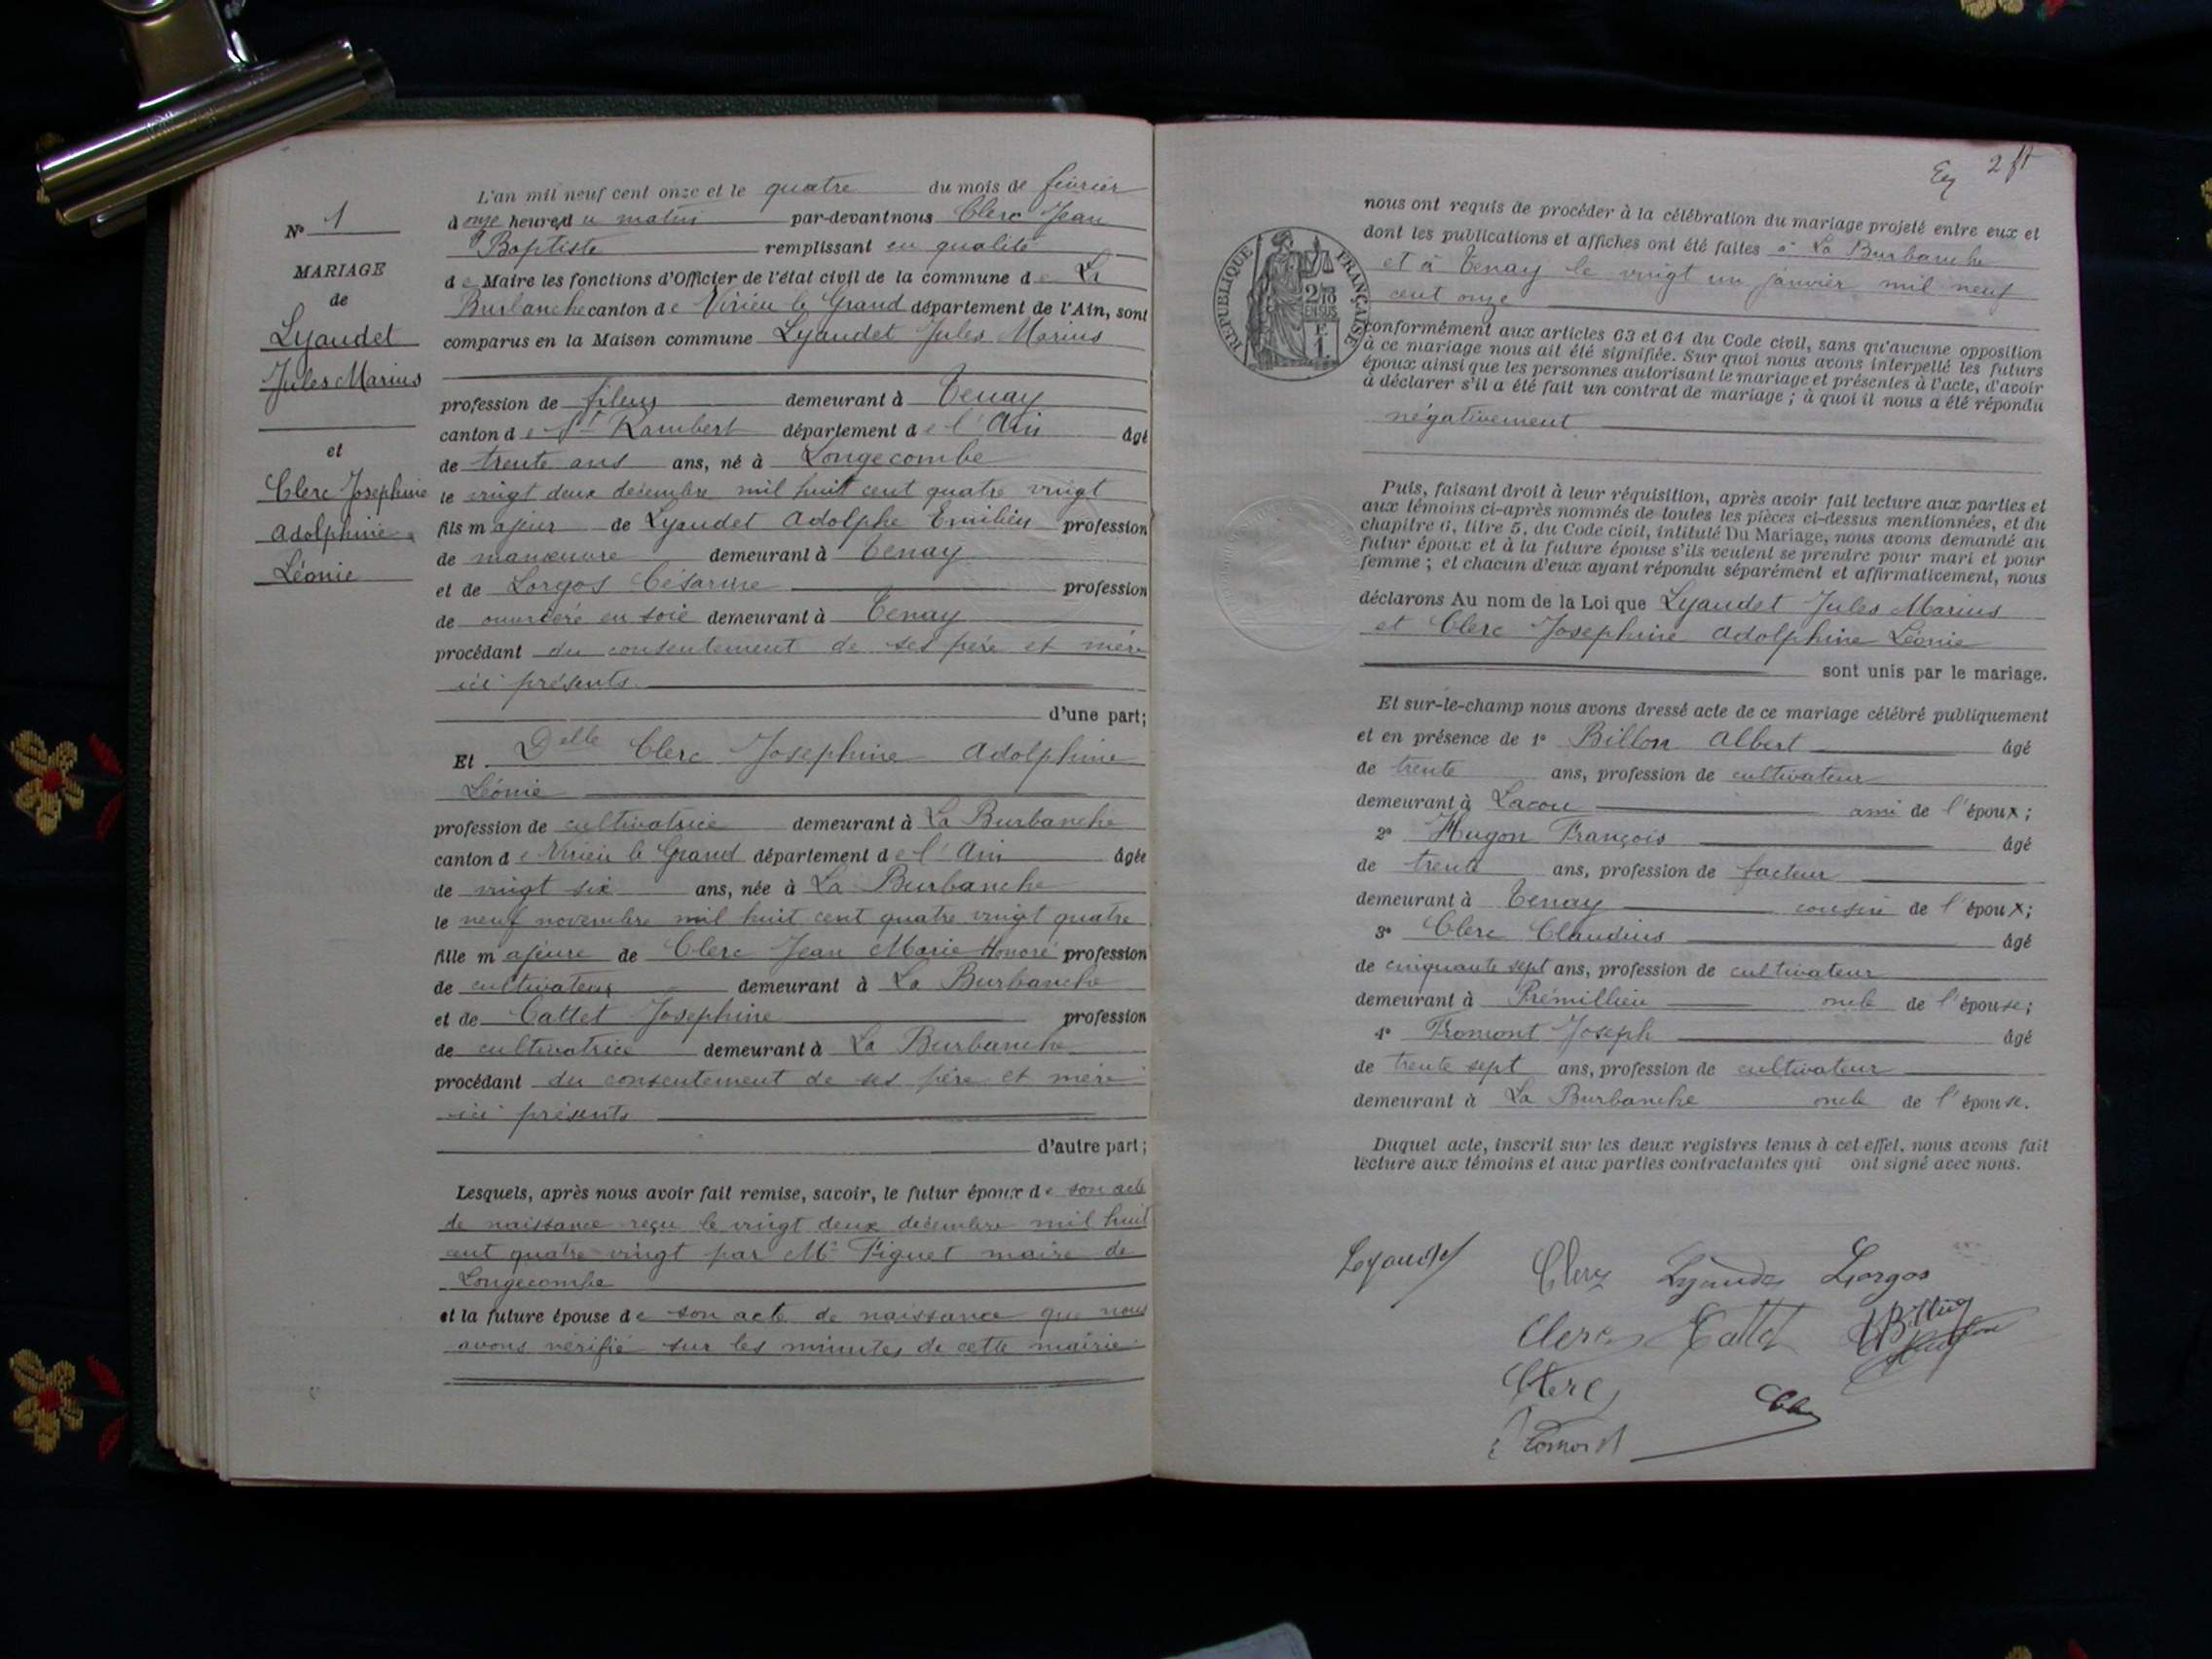 N° 1
MARIAGE
de
Lyaudet
Jules Marius
et
Clerc Josephine
Adolphine
Léonie
L'an mil neuf cent onze et le quatre du mois de février
à onze heures du matin par-devant nous Clerc Jean
Baptiste remplissant en qualité
de Maire les fonctions d'Officier de l'état civil de la commune de La
Burbanche canton de Virieu le Grand département de l'Ain, sont
comparus en la Maison commune Lyaudet Jules Marius
profession de fileur demeurant à Tenay
canton de St Rambert département de l'Ain âgé
de trente ans ans, né à Longecombe
le vingt deux decembre mil huit cent quatre vingt
fils majeur de Lyaudet Adolphe Emilien profession
de manœuvre demeurant à Tenay
et de Lorgos Césarine profession
de ouvrière en soie demeurant à Tenay
procédant du consentement de ses père et mère
ici présents.
d'une part;
Et Delle Clerc Josephine Adolphine
Léonie
profession de cultivatrice demeurant à La Burbanche
canton de Virieu le Grand département de l'Ain âgée
de vingt six ans, née à La Burbanche
le neuf novembre mil huit cent quatre vingt quatre
fille majeure de Clerc Jean Marie Honoré profession
de cultivateur demeurant à La Burbanche
et de Cattet Josephine profession
de cultivatrice demeurant à La Burbanche
procédant du consentement de ses père et mère
ici présents
d'autre part;
Lesquels, après nous avoir fait remise, savoir, le futur époux de son acte
de naissance reçu le vingt deux décembre mil huit
cent quatre vingt par Mr Figuet maire de
Longecombe
et la future épouse de son acte de naissance que nous
avons vérifié sur les minutes de cette mairie
2
nous ont requis de procéder à la célébration du mariage projeté entre eux et
dont les publications et affiches ont été faites à La Burbanche
et à Tenay le vingt un janvier mil neuf
cent onze
REPUBLIQUE FRANÇAISE
2/10
EN SUS
conformément aux articles 63 et 64 du Code civil, sans qu'aucune opposition
à ce mariage nous ait été signifiée. Sur quoi nous avons interpellé les futurs
époux ainsi que les personnes autorisant le mariage et présentes à l'acte, d'avoir
à déclarer s'il a été fait un contrat de mariage; à quoi il nous a été répondu
négativement
Puis, faisant droit à leur réquisition, après avoir fait lecture aux parties et
aux témoins ci-après nommés de toutes les pièces ci-dessus mentionnées, et du
chapitre 6, titre 5, du Code civil, intitulé Du Mariage, nous avons demandé au
futur époux et à la future épouse s'ils veulent se prendre pour mari et pour
femme; et chacun d'eux ayant répondu séparément et affirmativement, nous
déclarons Au nom de la Loi que Lyaudet Jules Marius
et Clerc Josephine Adolphine Léonie
sont unis par le mariage.
Et sur-le-champ nous avons dressé acte de ce mariage célébré publiquement
et en présence de 1° Billon Albert âgé
de trente ans, profession de cultivateur
demeurant à Lacou ami de l'époux;
2° Hugon François âgé
de trente ans, profession de facteur
demeurant à Tenay cousin de l'époux;
3° Clerc Claudius âgé
de cinquante sept ans, profession de cultivateur
demeurant à Prémillieu oncle de l'épouse;
4° Fromont Joseph âgé
de trente sept ans, profession de cultivateur
demeurant à La Burbanche oncle de l'épouse.
Duquel acte, inscrit sur les deux registres tenus à cet effet, nous avons fait
lecture aux témoins et aux parties contractantes qui ont signé avec nous.
Lyaudet Clerc Lyaudet Lorgos
Clerc Cattet
Clerc
Fromont